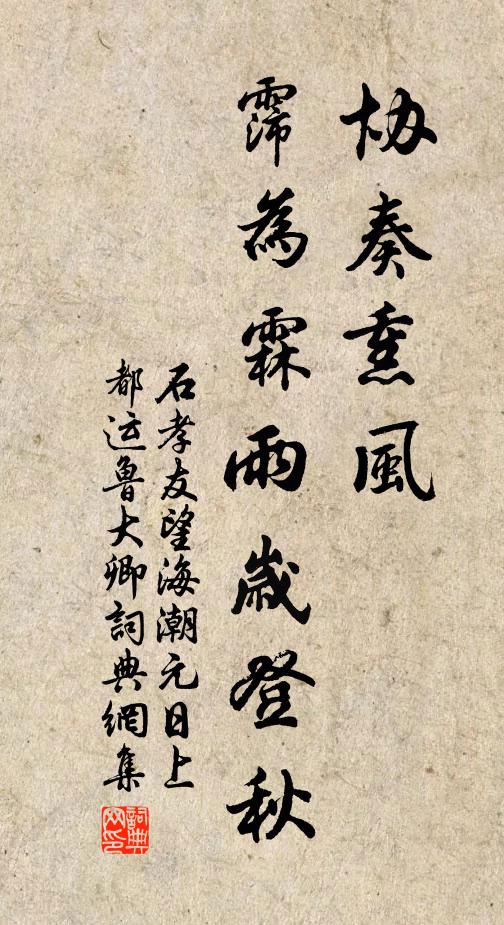 协奏熏風
霈為霖雨歲登秋
石孝友望海潮元日上
都运魯大卿詞典網集
詞典
网印